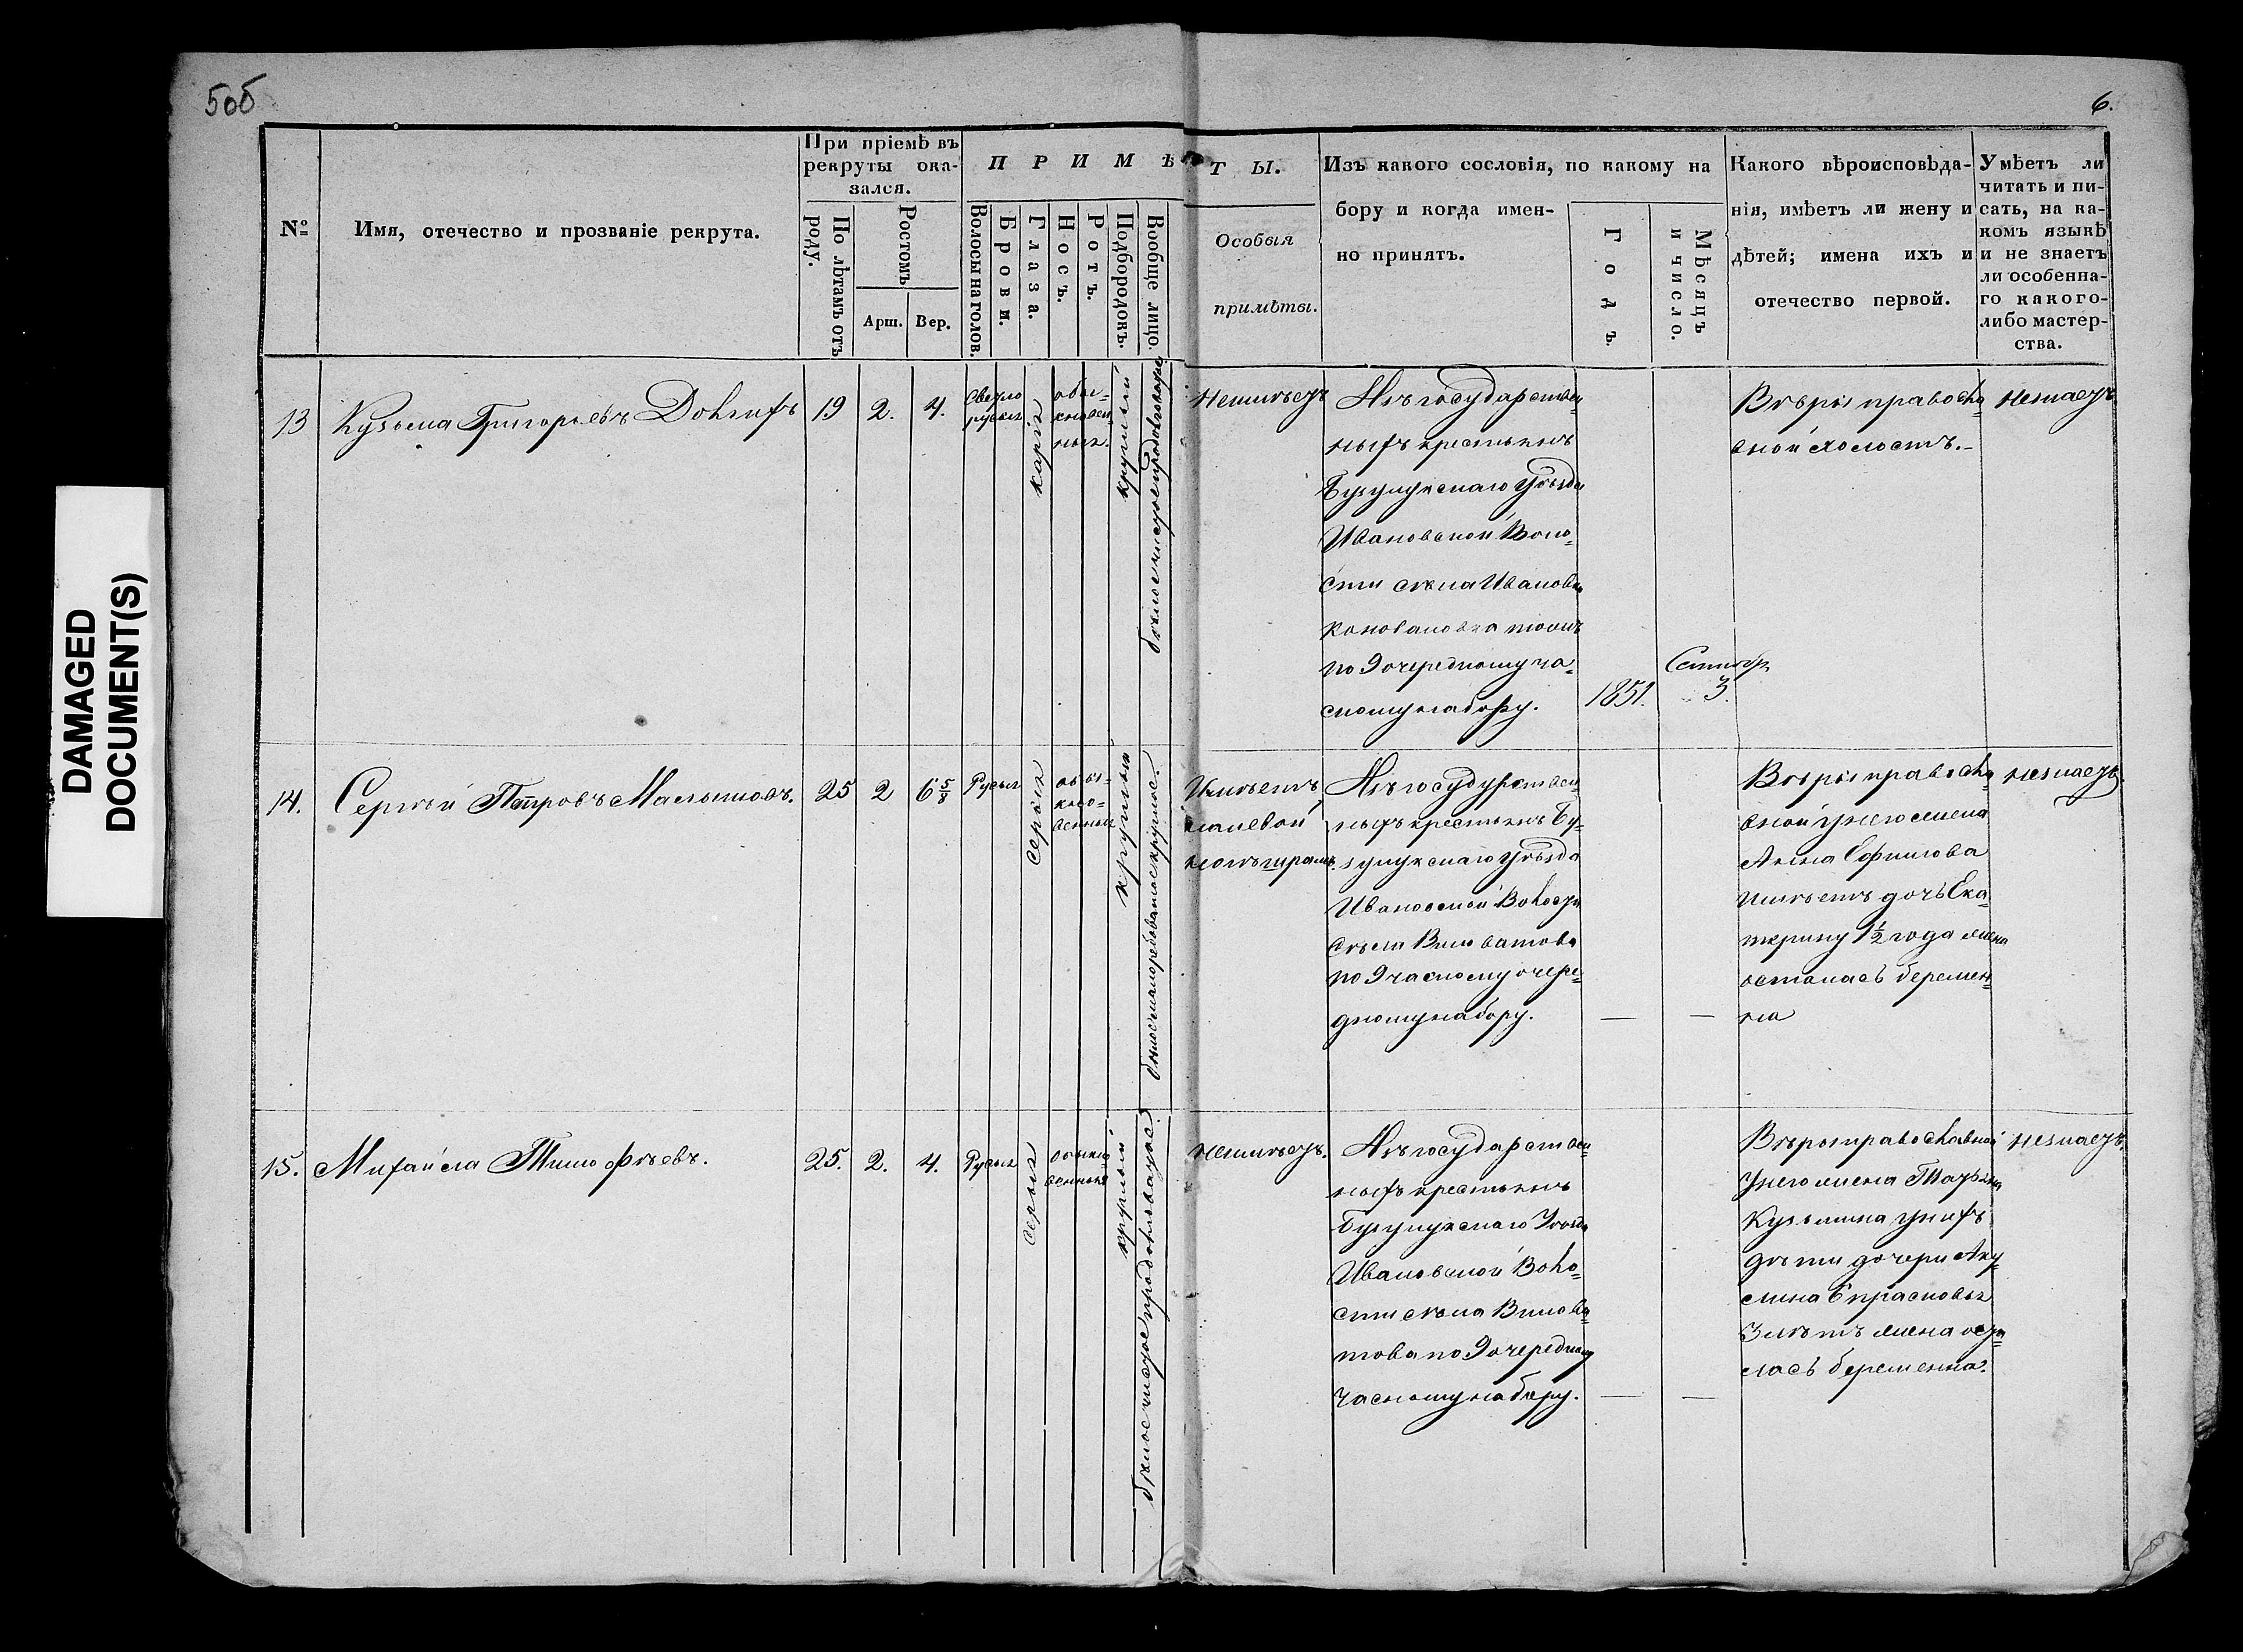 5об
6.
DAMAGED
DOCUMENT(S)
№
Имя, отечество и прозваніе рекрута.
При пріемѣ въ
рекруты ока-
зался.
По лѣтамъ отъ
роду.
Ростомъ
Арш.
Вер.
ПРИМѢТЫ.
Волосы на голов.
Брови.
Глаза.
Носъ.
Ротъ.
Подбородокъ.
Вообще лицо.
Особыя
примѣты.
Изъ какого сословія, по какому на
бору и когда имен-
но принятъ.
Годъ.
Мѣсяцъ
и число.
Какого вѣроисповѣда-
нія, имѣетъ ли жену и
дѣтей; имена ихъ и
отечество первой.
Умѣетъ ли
читать и пи-
сать, на ка-
комъ языкѣ
и не знаетъ
ли особенна-
го какого-
либо мастер-
ства.
13
Кузьма Григорьевъ Долгихъ
19
2.
4.
Светло
русыя
карія
обы-
кновен
ныя.
круглый
неимѣетъ
Изъ государствен
ныхъ крестьянъ
Бузулукскаго уѣзда
Ивановской Воло-
сти села Ивановки
Коноваловка тожъ
по 9 очередному ча-
сному набору.
1851.
Сентябр
3.
Вѣры правосла-
вной холостъ.-
незнаетъ
14.
Сергѣй Петровъ Малышовъ.
25
2
6 5/8
Русыя
серыя
обы-
кно-
венныя
круглый
Имѣетъ
на левой
ногѣ шрамъ.
Изъ государствен
ныхъ крестьянъ Бу-
зулукскаго уѣзда
Ивановской Волости
Сѣла Виловатова
по 9 часному очере-
дному набору.
—
—
Вѣры правосла-
вной у него жена
Анна Ефимова
имѣетъ дочь Ека-
терину 1½ года жена
осталась беремен-
на
незнаетъ.
15.
Михайла Тимофѣевъ.
25.
2.
4.
Русыя
серыя
обыкно
венныя
круглый
неимѣетъ.
Изъ государствен
ныхъ крестьянъ
Бузулукскаго Уѣзда
Ивановской Воло-
сти сѣла Вилова-
това по 9 очередному
часному набору.
—
—
Вѣры православной
У него жена
Кузьмина у нихъ
дѣти дочери Аку-
лина
3 лѣтъ жена оста-
лась беременна.
незнаетъ.